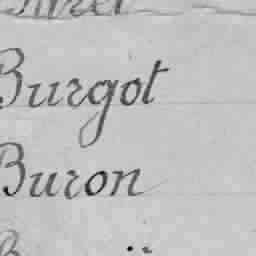 Burgot
Buron